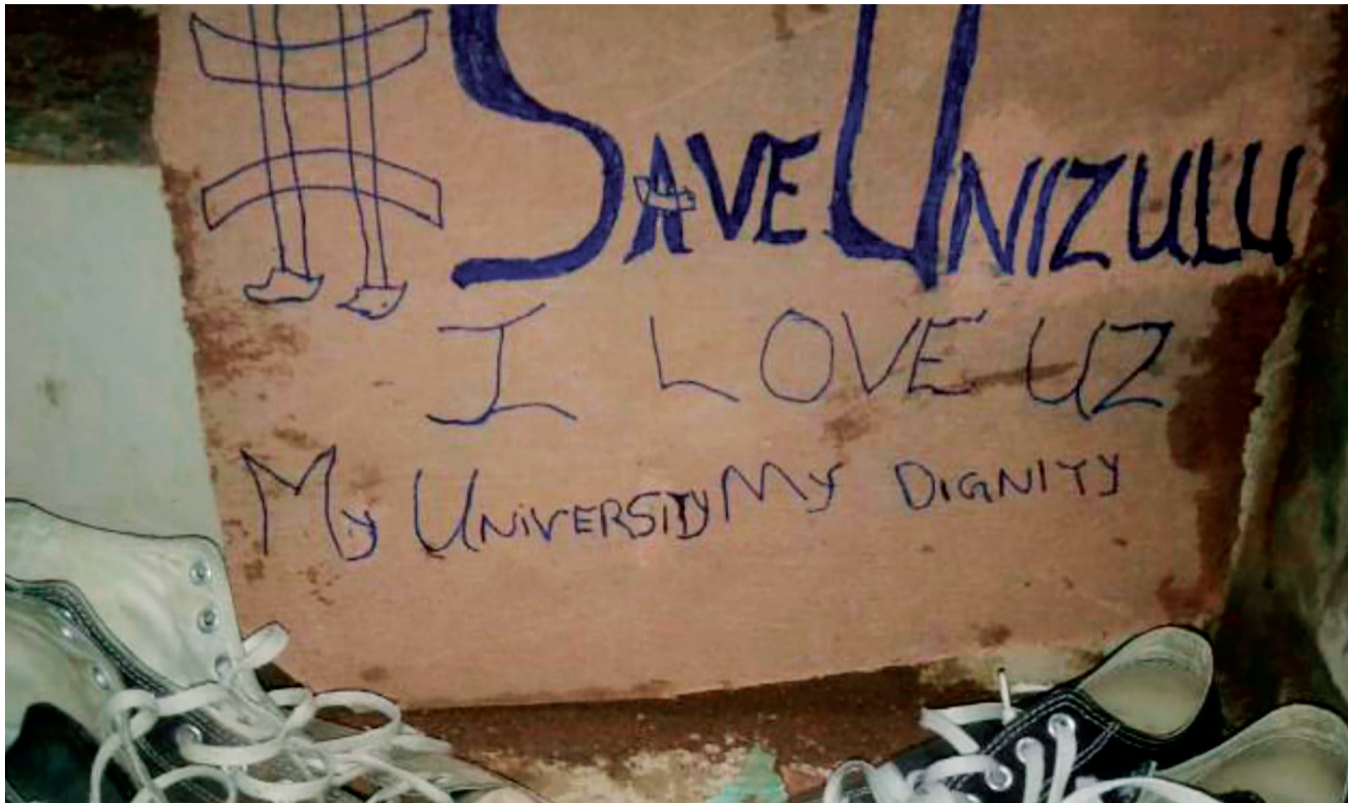 SAVE UNIZULU
I LOVE UZ
My UNiVERSITy My DIGNITY